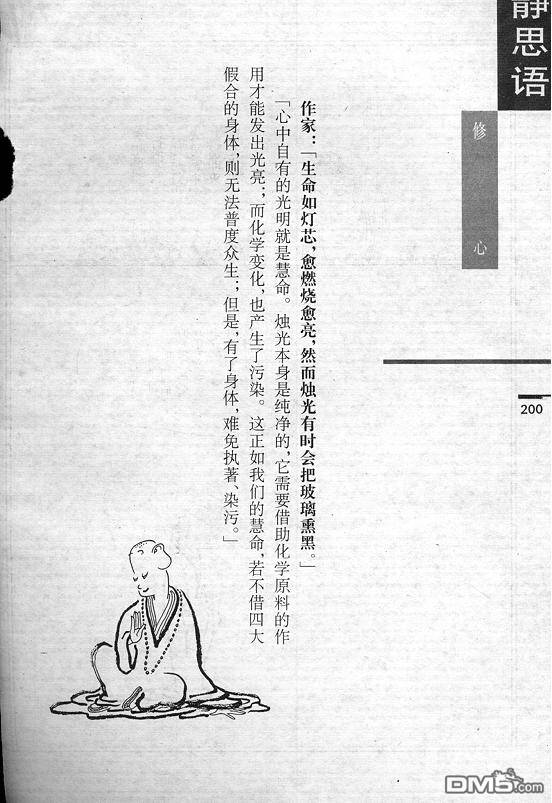 静思语
修心
200
作家：「生命如灯芯，愈燃烧愈亮，然而烛光有时会把玻璃熏黑。」
「心中自有的光明就是慧命。烛光本身是纯净的，它需要借助化学原料的作
用才能发出光亮；而化学变化，也产生了污染。这正如我们的慧命，若不借四大
假合的身体，则无法普度众生；但是，有了身体，难免执著、染污。」
DM5.com